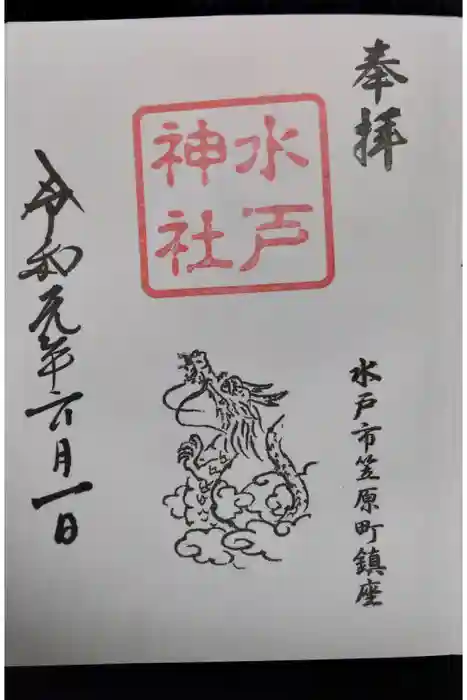 奉拝
水戸
神社
水戸市笠原町鎮座
令和元年六月一日